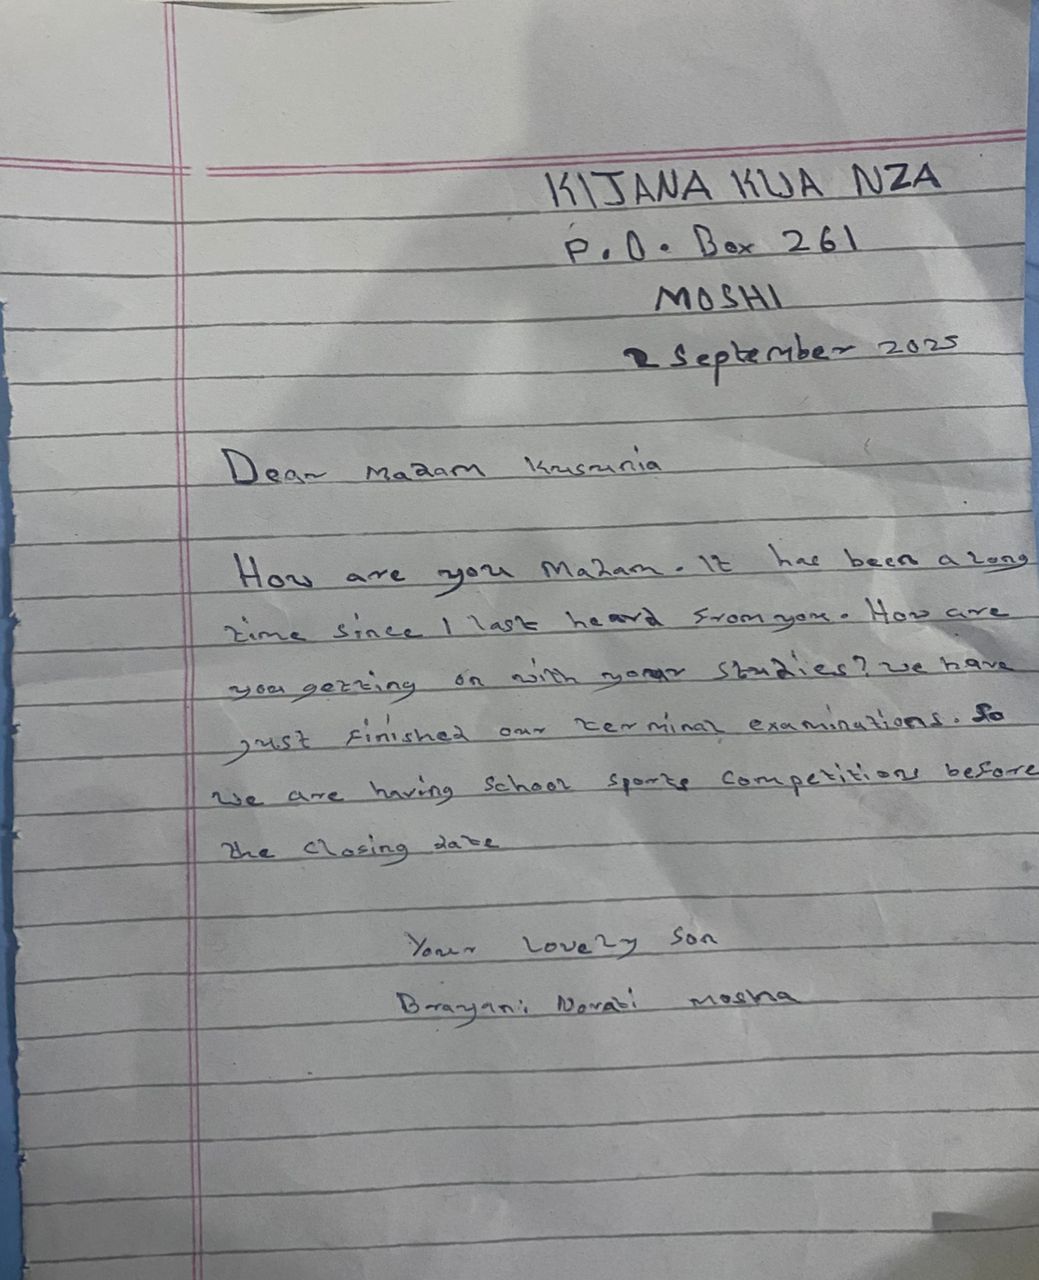 KIJANA KWA NZA
P.O. Box 261
MOSHI
2 September 2025
Dear Madam
How are you Madam. It has been a long
time since I last heard from you. How are
you getting on with your studies? we have
just finished our terminal examinations. So
we are having school sports competitions before
the closing date
Your lovely son
Brayani Novati Mosha